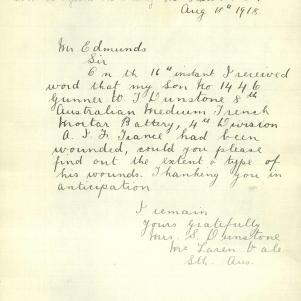 Aug 18th 1918
Mr Edmunds
Sir
On th 16th instant I received
word that my Son No 1446
Gunner W. T. Dunstone 8th
Australian Medium Trench
Mortar Battery, 4th Division
A. I. F. France had been
wounded, could you please
find out the extent & type of
his wounds. Thanking you in
anticipation
I remain
Yours Gratefully
Mrs. S. Dunstone
Mc Laren Vale
Sth. Aus.